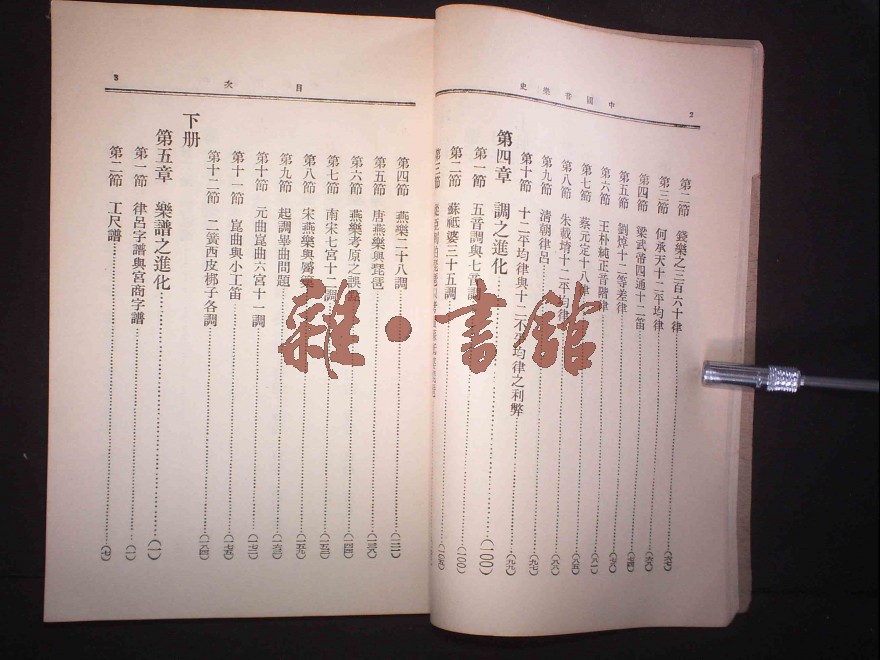 中國音樂史
2
第二節 錢樂之三百六十律
第三節 何承天十二平均律
第四節 梁武帝四通十二笛
第五節 劉焯十二等差律
第六節 王朴純正音階律
第七節 蔡元定十八律
第八節 朱載堉十二平均律
第九節 清朝律呂
第十節 十二平均律與十二不平均律之利弊
第四章 調之進化 (一〇〇)
第一節 五音調與七音調
第二節 蘇祇婆三十五調 (一〇〇)
第三節
目次
3
第四節 燕樂二十八調
第五節 唐燕樂與琵琶
第六節 燕樂考原之誤
第七節 南宋七宮十二調
第八節 宋燕樂與
第九節 起調畢曲問題
第十節 元曲崑曲六宮十一調
第十一節 崑曲與小工笛
第十二節 二簧西皮梆子各調
下册
第五章 樂譜之進化 (一)
第一節 律呂字譜與宮商字譜 (一)
第二節 工尺譜 (七)
雜·書館